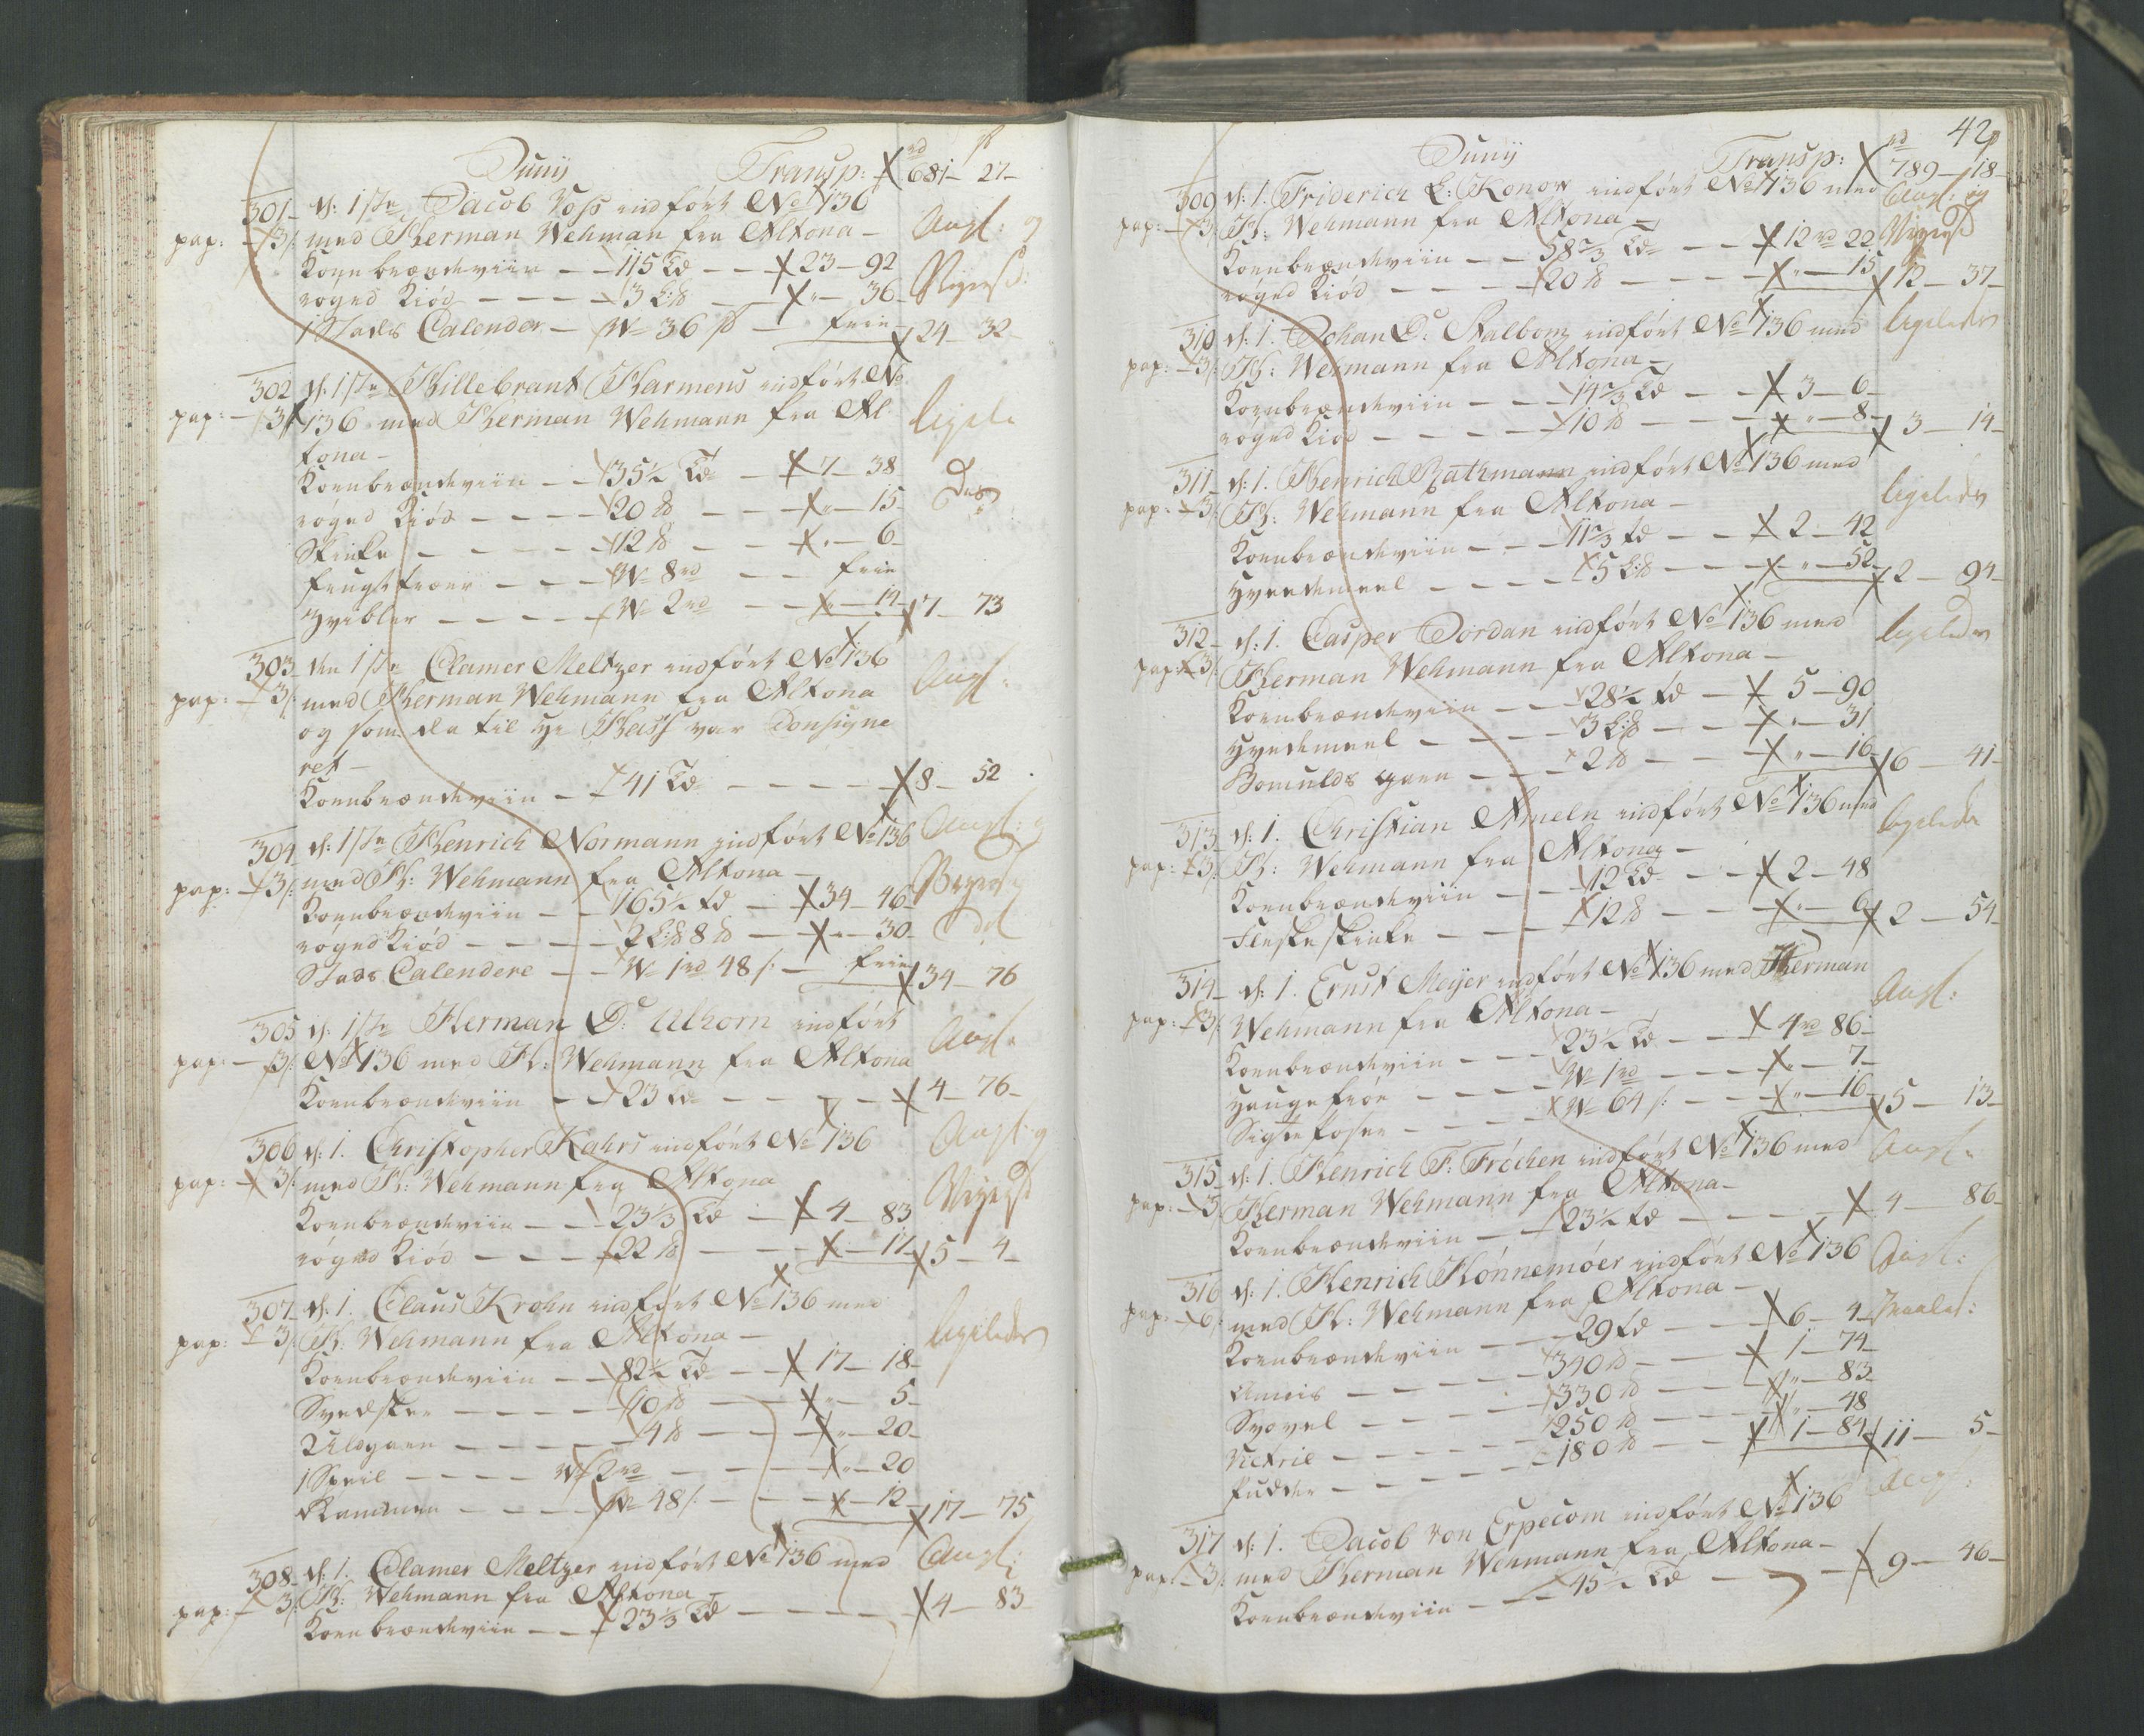 Junij Transp: 681 - 27 -
301 - d: 1ste Jacob Voss indført No 136
pap: - 3/: med Herman Wehman fra Altona -
Kornbrændeviin - - 115 Td - - 23 - 92
røged Kiød - - - - 3 L:℔ - - " - 36 -
1 Stads Calender - W= 36 ß - frie - 24 - 32
302 d: 1ste Hillebrant Harmens indført No
pap: - 3/: 136 med Herman Wehmann fra Al
tona -
Kornbrændeviin - - 35½ Td - 7 - 38
røged Kiød - - - - 20 ℔ - - " - 15 -
Skinke - - - - - 12 ℔ - - " - 6 -
frugt træer - - - W= 8 rd - - frie
Zvibler - - - - W= 2 rd - - " - 14 - 7 - 73
303 - den 1ste Clamer Meltzer indført No 136
pap: - 3/: med Herman Wehmann fra Altona
og som da til H: Hass var Consigne
ret -
Kornbrændeviin - - 41 Td - - - - - 8 - 52
304 - d: 1ste Henrich Normann indført No 136
pap: - 3/: med H: Wehmann fra Altona -
Kornbrændeviin - - 165½ td - 34 - 46 -
røged Kiød - - - - 2 L:℔ 8 ℔ - " - 30 -
Stads Calendere - - W= 1 rd 48 /: - frie 34 - 76
305 d: 1ste Herman D: Uhorn indført
pap: - 3/: No 136 med H: Wehmann fra Altona
Kornbrændeviin - - 23 Td - - - - - 4 - 76 -
306 d: 1. Christopher Kahrs indført No 136
pap: - 3/: med H: Wehmann fra Altona
Kornbrændeviin - - 23⅓ Td - 4 - 83
røged Kiød - - - 22 ℔ - - - " - 17 - 5 - 4 -
307 - d: 1. Claus Krohn indført No 136 med
pap: - 3/: H: Wehmann fra Altona -
Kornbrændeviin - - 82½ Td - - 17 - 18 -
Svedsker - - - - - 10 ℔ - - " - 5 -
Uldgarn - - - - - 4 ℔ - - " - 20 -
1 Speil - - - - W= 2 rd - - - " - 20
Kammen - - - - W= 48 /: - - " - 12 - 17 - 75
308 - d: 1. Clamer Meltzer indført No 136 med
pap: - 3/: H: Wehmann fra Altona -
Kornbrændeviin - - 23⅓ Td - - - - - 4 - 83
42
Junij Transp: 789 - 18 -
309 d: 1. Friderich L: Konow indført No 136 med
pap: - 3/: H: Wehmann fra Altona -
Kornbrændeviin - - 58⅔ Td - - 12 rd 22
røged Kiød - - - - 20 ℔ - - - " - 15 12 - 37 -
310 d: 1. Johan D: Stalbom indført No 136 med
pap: - 3/: H: Wehmann fra Altona -
Kornbrændeviin - - - 14⅔ Td - - 3 - 6 -
røged Kiød - - - - 10 ℔ - - - " - 8 - 3 - 14 -
311 - d: 1. Henrich Rathmann indført No 136 med
pap: - 3/: H: Wehmann fra Altona -
Kornbrændeviin - - - 11⅔ td - - 2 - 42
Hvedemeel - - - - 5 L:℔ - - - " - 52 2 - 94
312 - d: 1. Casper Jordan indført No 136 med
pap: - 3/: Herman Wehmann fra Altona -
Kornbrændeviin - - 28½ td - 5 - 90
Hvedemeel - - - - 3 L:℔ - - " - 31
Bomulds garn - - - 2 ℔ - - " - 16 - 6 - 41 -
313 - d: 1. Christian Ameln indført No 136 med
pap: - 3/: H: Wehmann fra Altona -
Kornbrændeviin - - 12 Td - - 2 - 48
Fleske skinke - - - 12 ℔ - - " - 6 2 - 54
314 - d: 1. Ernst Meijer indført No 136 med Herman
pap: - 3/: Wehmann fra Altona -
Kornbrændeviin - - - 23½ Td - - 4 rd 86 -
Haugefrøe - - - - W= 1 rd - - - " - 7 -
Sigte - - - - W= 64 /: - - " - 16 - 5 - 13 -
315 - d: 1. Henrich F: Fróchen indført No 136 med
pap: - 3/: Herman Wehmann fra Altona -
Kornbrændeviin - - 23½ td - - - - 4 - 86 -
316 d: 1. Henrich Hónnemóer indført No 136
pap: - 6/: med H: Wehmann fra Altona -
Kornbrændeviin - - - 29 td - - - 6 - 4 -
Anis - - - - - 340 ℔ - - 1 - 74 -
Svovel - - - - - 330 ℔ - - " - 83 -
Victril - - - - - 250 ℔ - - " - 48
Pudder - - - - - 180 ℔ - - 1 - 84 - 11 - 5 -
317 d: 1. Jacob von Erpecom indført No 136
pap: - 3/: med Herman Wehmann fra Altona -
Kornbrændeviin - - - 45½ Td - - - 9 - 46 -